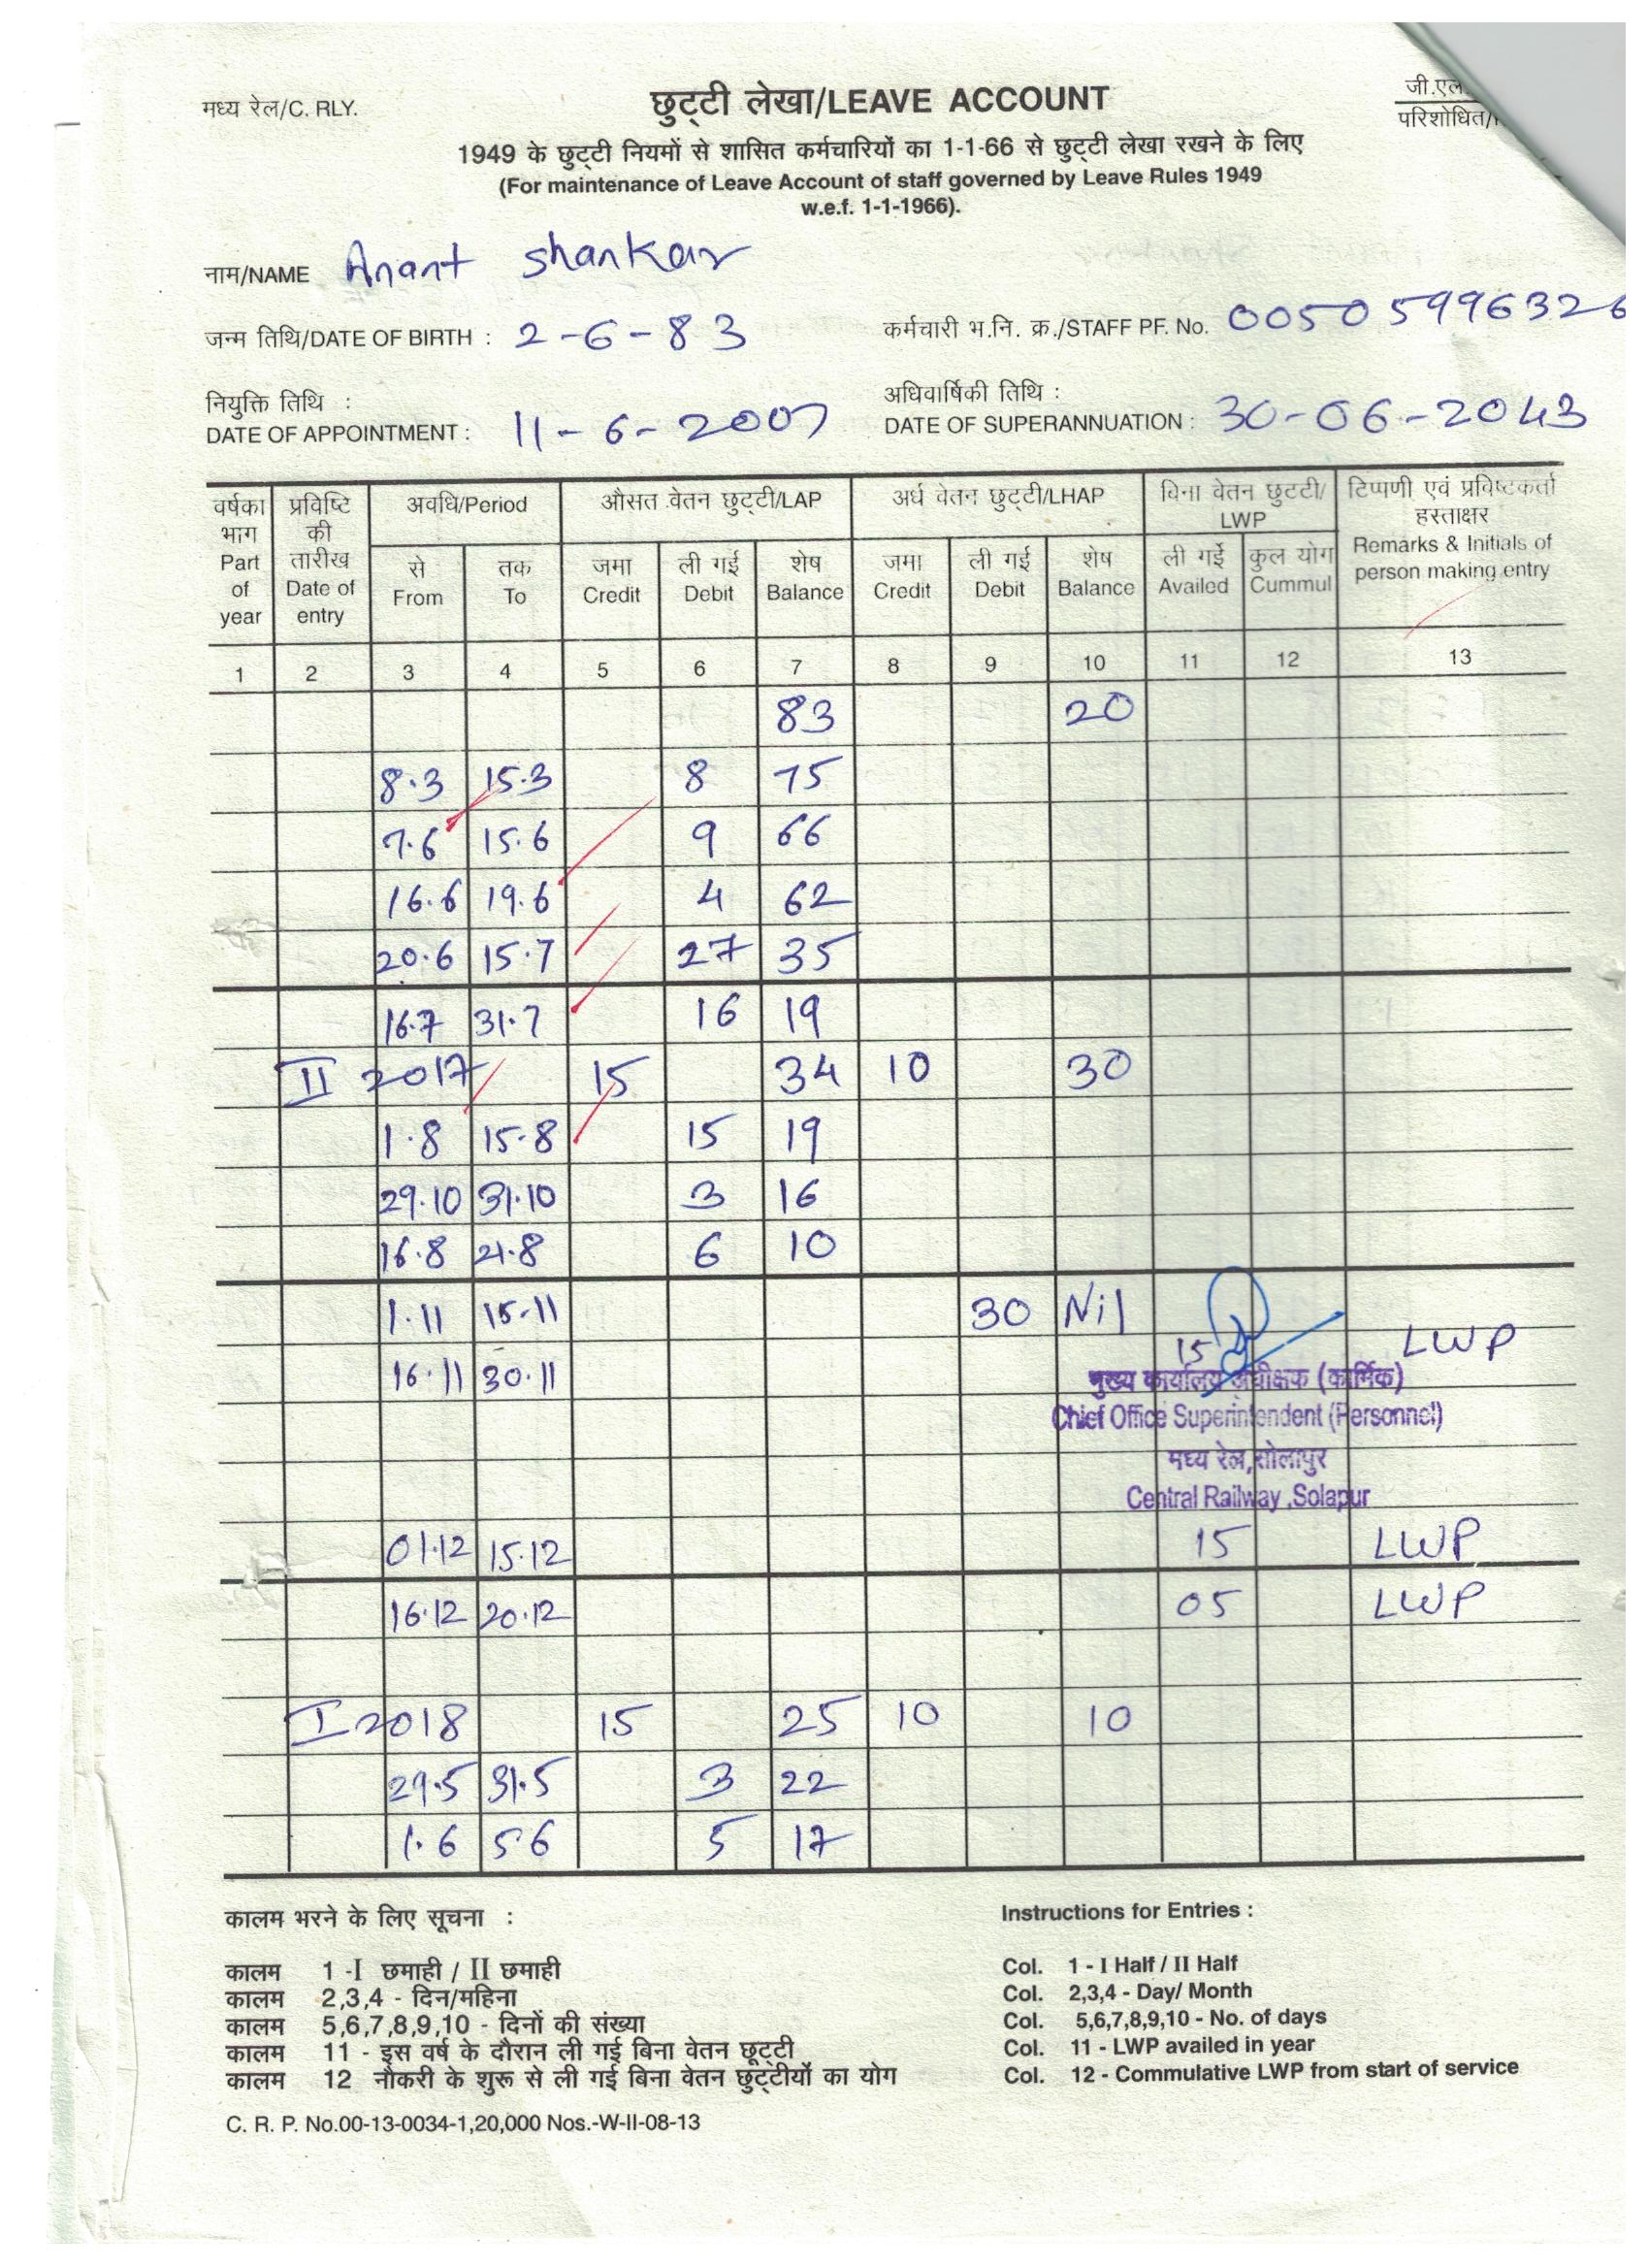 मध्य रेल/C. RLY.
छुट्टी लेखा/LEAVE ACCOUNT
जी.एल
परिशोधित/
1949 के छुट्टी नियमों से शासित कर्मचारियों का 1-1-66 से छुट्टी लेखा रखने के लिए
(For maintenance of Leave Account of staff governed by Leave Rules 1949
w.e.f. 1-1-1966).
नाम/NAME Anant Shankar
जन्म तिथि/DATE OF BIRTH : 2-6-83 कर्मचारी भ.नि. क्र./STAFF PF. No. 00505996326
नियुक्ति तिथि : अधिवार्षिकी तिथि :
DATE OF APPOINTMENT : 11-6-2007 DATE OF SUPERANNUATION : 30-06-2043
वर्षका भाग Part of year
प्रविष्टि की तारीख Date of entry
अवधि/Period
से From
तक To
औसत वेतन छुट्टी/LAP
जमा Credit
ली गई Debit
शेष Balance
अर्ध वेतन छुट्टी/LHAP
जमा Credit
ली गई Debit
शेष Balance
बिना वेतन छुटटी/ LWP
ली गई Availed
कुल योग Cummul
टिप्पणी एवं प्रविष्टकर्ता हस्ताक्षर Remarks & Initials of person making entry
1 2 3 4 5 6 7 8 9 10 11 12 13
83 20
8.3 15.3 8 75
7.6 15.6 9 66
16.6 19.6 4 62
20.6 15.7 27 35
16.7 31.7 16 19
II 2017 15 34 10 30
1.8 15.8 15 19
29.10 31.10 3 16
16.8 21.8 6 10
1.11 15.11 30 Nil
16.11 30.11 15 LWP
मुख्य कार्यालय अधीक्षक (कार्मिक)
Chief Office Superintendent (Personnel)
मध्य रेल,सोलापुर
Central Railway ,Solapur
01.12 15.12 15 LWP
16.12 20.12 05 LWP
I 2018 15 25 10 10
29.5 31.5 3 22
1.6 5.6 5 17
कालम भरने के लिए सूचना :
कालम 1 -I छमाही / II छमाही
कालम 2,3,4 - दिन/महिना
कालम 5,6,7,8,9,10 - दिनों की संख्या
कालम 11 - इस वर्ष के दौरान ली गई बिना वेतन छूट्टी
कालम 12 नौकरी के शुरू से ली गई बिना वेतन छुट्टीयों का योग
Instructions for Entries :
Col. 1 - I Half / II Half
Col. 2,3,4 - Day/ Month
Col. 5,6,7,8,9,10 - No. of days
Col. 11 - LWP availed in year
Col. 12 - Commulative LWP from start of service
C. R. P. No.00-13-0034-1,20,000 Nos.-W-II-08-13